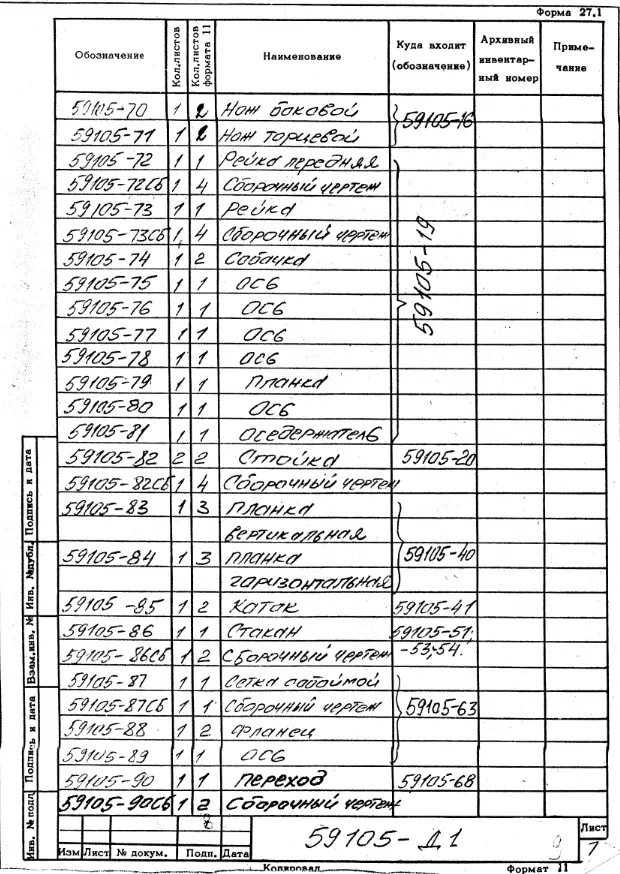 Форма 27.1
Обозначение Кол.листов Кол.листов формата 11 Наименование Куда входит (обозначение) Архивный инвентар-ный номер Приме-чание
59105-70 1 2 Нож боковой 59105-16
59105-71 1 2 Нож торцевой
59105-72 1 1 Рейка передняя
59105-72Сб 1 4 Сборочный чертеж
59105-73 1 1 Рейка 59105-19
59105-73Сб 1 4 Сборочный чертеж
59105-74 1 2 Собачка
59105-75 1 1 Ось
59105-76 1 1 Ось
59105-77 1 1 Ось
59105-78 1 1 Ось
59105-79 1 1 Планка
59105-80 1 1 Ось
59105-81 1 1 Оседержатель
59105-82 2 2 Стойка 59105-20
59105-82Сб 1 4 Сборочный чертеж
59105-83 1 3 Планка
вертикальная
59105-84 1 3 планка 59105-40
гаризонтальная
59105-85 1 2 Каток 59105-41
59105-86 1 1 Стакан 59105-51;
59105-86Сб 1 2 Сборочный чертеж -53;-54.
59105-87 1 1 Сетка с обоймой
59105-87Сб 1 1 Сборочный чертеж 59105-63
59105-88 1 2 Фланец
59105-89 1 1 Ось
59105-90 1 1 переход 59105-68
59105-90Сб 1 2 Сборочный чертеж
Подпись и дата
Инв. №дубл.
Взам.инв. №
Подпись и дата
Инв. № подл
59105-Д1
Лист
9 7
Изм Лист № докум. Подп. Дата
Копировал Формат 11